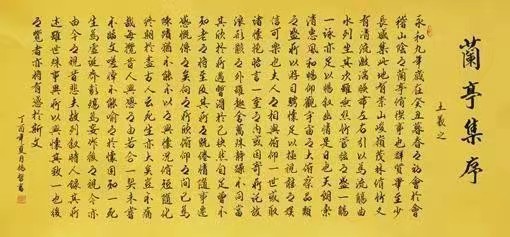 蘭亭集序
王羲之
永和九年歲在癸丑暮春之初會於會
稽山陰之蘭亭脩稧事也群賢畢至少
長咸集此地有崇山峻領茂林脩竹又
有清流激湍暎帶左右引以為流觴曲
水列坐其次雖無絲竹管弦之盛一觴
一詠亦足以暢敘幽情是日也天朗氣
清惠風和暢仰觀宇宙之大俯察品類
之盛所以游目騁懷足以極視聽之娛
信可樂也夫人之相與俯仰一世或取
諸懷抱悟言一室之內或因寄所託放
浪形骸之外雖趣舍萬殊靜躁不同當
其欣於所遇暫得於己快然自足曾不
知老之將至及其所之既惓情隨事遷
感慨係之矣向之所欣俛仰之間以為
陳迹猶不能不以之興懷況脩短隨化
終期於盡古人云死生亦大矣豈不痛
哉每攬昔人興感之由若合一契未嘗
不臨文嗟悼不能喻之於懷固知一死
生為虛誕齊彭殤為妄作後之視今亦
由今之視昔悲夫故列敘時人錄其所
述雖世殊事異所以興懷其致一也後
之覽者亦將有感於斯文
丁酉年夏月書